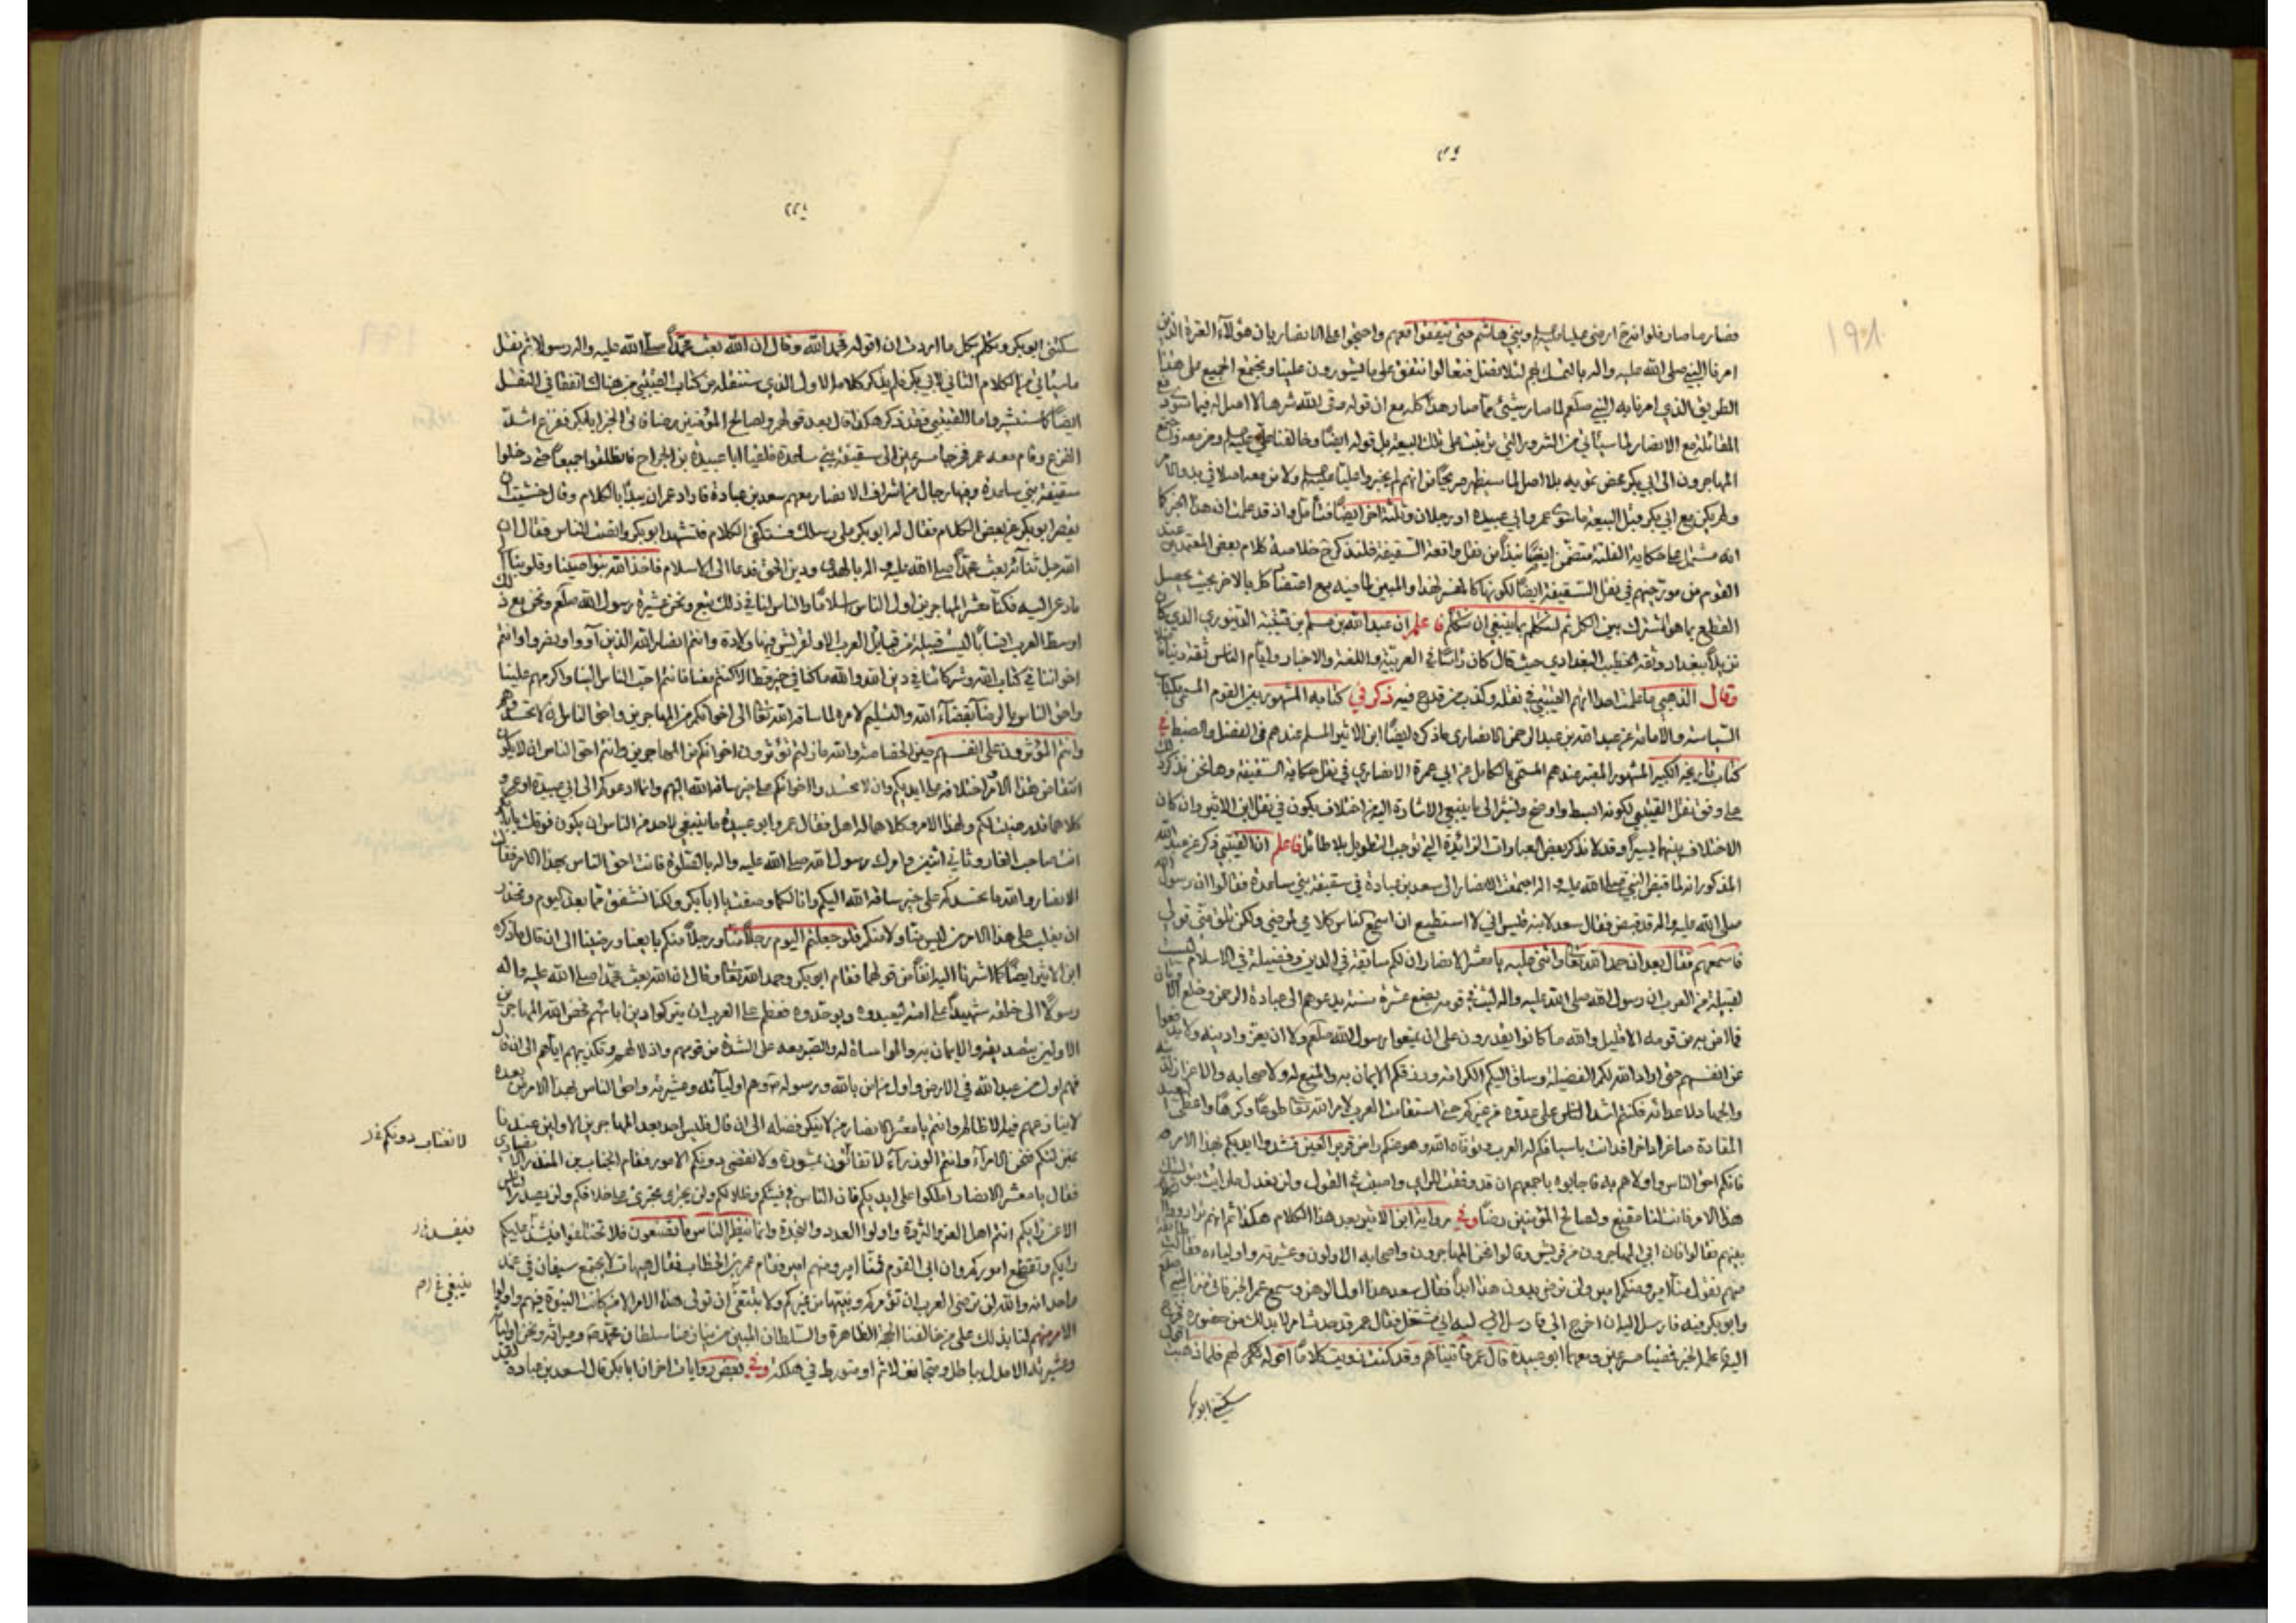 فصار ما صار فلو انهم ارضى عليا عليه السلم وبني هاشم حتى يتفقوا معهم واحتجوا على الانصار بان هؤلاء العترة الذين
امرنا النبي صلى الله عليه واله بالتمسك بهم لئلا نضل فتعالوا نتفق على ما يشورون علينا ويجتمع الجميع على هذا
الطريق الذي امرنا به النبي صلعم لما صار شيئ مما صار هذا كله مع ان قوله وقى الله شرها لا اصل له فيما سوى دفع
المقاتلة مع الانصار لما سيأتي من الشرور التي ترتبت على تلك البيعة بل قوله ايضا وخالفنا علي عليه السلم ومن معه واجتمع
المهاجرون الى ابي بكر محض تمويه بلا اصل لما سيظهر صريحا من انهم لم يخبروا عليا عليه السلم ولا من معه اصلا في بدو الامر
ولم يكن مع ابي بكر قبل البيعة ما سوى عمر وابي عبيدة او رجلان وثلثة اخر ايضا فتأمل واذ قد علمت ان هذا الخبر كما
انه مشتمل على حكاية الفلتة متضمن ايضا نبذا من نقل واقعة السقيفة فلنذكر ح خلاصة كلام بعض المعتمدين عند
القوم من مورخيهم في نقل السقيفة ايضا لكونها كالمفسر لهذا والمبين لما فيه مع اعتضاد كل بالاخر بحيث يحصل
القطع بما هو المشترك بين الكل ثم لنتكلم بما ينبغي ان نتكلم فاعلم ان عبد الله بن مسلم بن قتيبة الدينوري الذي كان
نزيلا ببغداد وثقه الخطيب البغدادي حيث قال كان رأسا في العربية واللغة والاخبار وايام الناس ثقة دينا فاضلا
وقال الذهبي ما علمت احدا اتهم القتيبي في نقله وكذب من قدح فيه ذكر في كتابه المشهور بين القوم المسمى بكتاب
السياسة والامامة عن عبد الله بن عبد الرحمن الانصاري ما ذكره ايضا ابن الاثير المسلم عندهم في الفضل والضبط في
كتاب تاريخه الكبير المشهور المعتبر عندهم المسمى بالكامل عن ابي عمرة الانصاري في نقل حكاية السقيفة وها نحن نذكر ذلك
على وفق نقل القتيبي لكونه ابسط واوضح ونشير الى ما ينبغي الاشارة اليه من اختلاف يكون في نقل ابن الاثير وان كان
الاختلاف بينهما يسيرا وقد لا نذكر بعض العبارات الزائدة التي توجب التطويل بلا طائل فاعلم ان القتيبي ذكر عن عبد الله
المذكور انه لما قبض النبي صلى الله عليه واله اجتمعت الانصار الى سعد بن عبادة في سقيفة بني ساعدة فقالوا ان رسول الله
صلى الله عليه واله قد قبض فقال سعد لابنه قيس اني لا استطيع ان اسمع الناس كلامي لمرضي ولكن تلق مني قولي
فاسمعهم فقال بعد ان حمد الله تعا واثنى عليه يا معشر الانصار ان لكم سابقة في الدين وفضيلة في الاسلام ليست
لقبيلة من العرب ان رسول الله صلى الله عليه واله لبث في قومه بضع عشرة سنة يدعوهم الى عبادة الرحمن وخلع الاوثان
فما امن به من قومه الا قليل والله ما كانوا يقدرون على ان يمنعوا رسول الله صلعم ولا ان يعزوا دينه ولا يدفعوا
عن انفسهم حتى اراد الله لكم الفضيلة وساق اليكم الكرامة ورزقكم الايمان به والمنع له ولاصحابه والاعزاز لدينه
والجهاد لاعدائه فكنتم اشد الناس على عدوه من غيركم حتى استقامت العرب لامر الله تعا طوعا وكرها واعطى البعيد
المقادة صاغرا داخرا فدانت باسيافكم له العرب وتوفاه الله وهو عنكم راض قرير العين فشدوا ايديكم بهذا الامر
فانكم احق الناس واولاهم به فاجابوه باجمعهم ان قد وفقت للراي واصبت في القول ولن نعدل ما رأيت نوليك
هذا الامر فانت لنا مقنع ولصالح المؤمنين رضا وفي رواية ابن الاثير بعد هذا الكلام هكذا ثم انهم ترادوا الكلام
بينهم فقالوا فان ابى المهاجرون من قريش وقالوا نحن المهاجرون واصحابه الاولون وعشيرته واولياءه فقالت طائفة
منهم نقول منا امير ومنكم امير ولن نرضى بدون هذا ابدا فقال سعد هذا اول الوهن وسمع عمر الخبر فاتى منزل النبي صلعم
وابو بكر فيه فارسل اليه ان اخرج الي فارسل اليه اني مشتغل فقال عمر قد حدث امر لا بد لك من حضوره فخرج
اليه فاعلمه الخبر فمضيا مسرعين ومعهما ابو عبيدة قال عمر فأتيناهم وقد كنت زويت كلاما اقوله لهم فلما ذهبت
سكتني ابو بكر
سكتني ابو بكر وتكلم بكل ما اردت ان اقوله فحمد الله وقال ان الله بعث محمدا صلى الله عليه واله رسولا ثم نقل
ما سيأتي من الكلام الثاني لابي بكر فلم يذكر كلامه الاول الذي سننقله من كتاب القتيبي من هناك اتفقا في النقل
ايضا كما سنشير واما القتيبي فقد ذكر هكذا قال بعد قولهم ولصالح المؤمنين رضا فاتى الخبر ابا بكر ففزع اشد
الفزع وقام معه عمر فخرجا مسرعين الى سقيفة بني ساعدة فلقيا ابا عبيدة بن الجراح فانطلقوا جميعا حتى دخلوا
سقيفة بني ساعدة وفيها رجال من اشراف الانصار معهم سعد بن عبادة فاراد عمر ان يبدأ بالكلام وقال خشيت ان
يقصر ابو بكر عن بعض الكلام فقال له ابو بكر على رسلك فستكفى الكلام فتشهد ابو بكر وانصت الناس فقال ان
الله جل ثناؤه بعث محمدا صلى الله عليه واله بالهدى ودين الحق فدعا الى الاسلام فاخذ الله بنواصينا وقلوبنا الى
ما دعى اليه فكنا معشر المهاجرين اول الناس اسلاما والناس لنا في ذلك تبع ونحن عشيرة رسول الله صلعم ونحن مع ذلك
اوسط العرب انسابا ليست قبيلة من قبائل العرب الا ولقريش فيها ولادة وانتم انصار الله الذين آووا ونصروا وانتم
اخواننا في كتاب الله وشركائنا في دين الله والله ما كنا في خير قط الا كنتم معنا فانتم احب الناس الينا واكرمهم علينا
واحق الناس بالرضا بقضاء الله والتسليم لامره لما ساقه الله تعا الى اخوانكم من المهاجرين واحق الناس ان لا تحسدوهم
وانتم المؤثرون على انفسهم حين الخصاصة والله ما زلتم تؤثرون اخوانكم من المهاجرين وانتم احق الناس ان لا يكون
انتقاض هذا الامر واختلافه على ايديكم وان لا تحسدوا اخوانكم على خير ساقه الله اليهم وانما ادعوكم الى ابي عبيدة او عمر و
كلاهما قد رضيت لكم ولهذا الامر وكلاهما له اهل فقال عمر وابو عبيدة ما ينبغي لاحد من الناس ان يكون فوقك يا ابا بكر
انت صاحب الغار وثاني اثنين وامرك رسول الله صلى الله عليه واله بالصلوة فانت احق الناس بهذا الامر فقال
الانصار والله ما نحسدكم على خير ساقه الله اليكم وانا لكما وصفت يا ابا بكر ولكنا نشفق مما بعد اليوم ونحذر
ان يغلب على هذا الامر من ليس منا ولا منكم فلو جعلتم اليوم رجلا منا ورجلا منكم بايعنا ورضينا الى ان قال ما ذكره
ابن الاثير ايضا كما اشرنا اليه انفا من قولهما فقام ابو بكر وحمد الله تعا وقال ان الله بعث محمدا صلى الله عليه واله
رسولا الى خلقه شهيدا على امته ليعبدوه ويوحدوه فعظم على العرب ان يتركوا دين ابائهم فخص الله المهاجرين
الاولين بتصديقه والايمان به والمواساة له والصبر معه على الشدة من قومهم واذلالهم وتكذيبهم اياهم الى ان قال
فهم اول من عبد الله في الارض واول من امن بالله ورسوله وهم اولياءه وعشيرته واحق الناس بهذا الامر من بعده
لا ينازعهم فيه الا ظالم وانتم يا معشر الانصار من لا ينكر فضله الى ان قال فليس احد بعد المهاجرين الاولين عندنا
بمنزلتكم فنحن الامراء وانتم الوزراء لا تفاتون بمشورة ولا تقضى دونكم الامور فقام الحباب بن المنذر الانصاري
فقال يا معشر الانصار املكوا على ايديكم فان الناس في فيئكم وظلالكم ولن يجترى مجترئ على خلافكم ولن يصدر الناس
الا عن رايكم انتم اهل العز والثروة واولوا العدد والنجدة وانما ينظر الناس ما تصنعون فلا تختلفوا فيفسد عليكم
رايكم وتقطع اموركم وان ابى القوم فمنا امير ومنهم امير فقام عمر بن الخطاب فقال هيهات لا يجتمع سيفان في غمد
واحد انه والله لن ترضى العرب ان تؤمركم ونبيها من غيركم ولا ينبغي ان تولى هذا الامر الا من كانت النبوة فيهم واولوا
الامر منهم لنا بذلك على من خالفنا الحجة الظاهرة والسلطان المبين من ينازعنا سلطان محمد وميراثه ونحن اولياؤه
وعشيرته الا مدل بباطل ومتجانف لاثم او متورط في هلكة وفي بعض روايات اخر ان ابا بكر قال لسعد بن عبادة لقد
لا نفتات دونكم
فيفسد
ينبغي